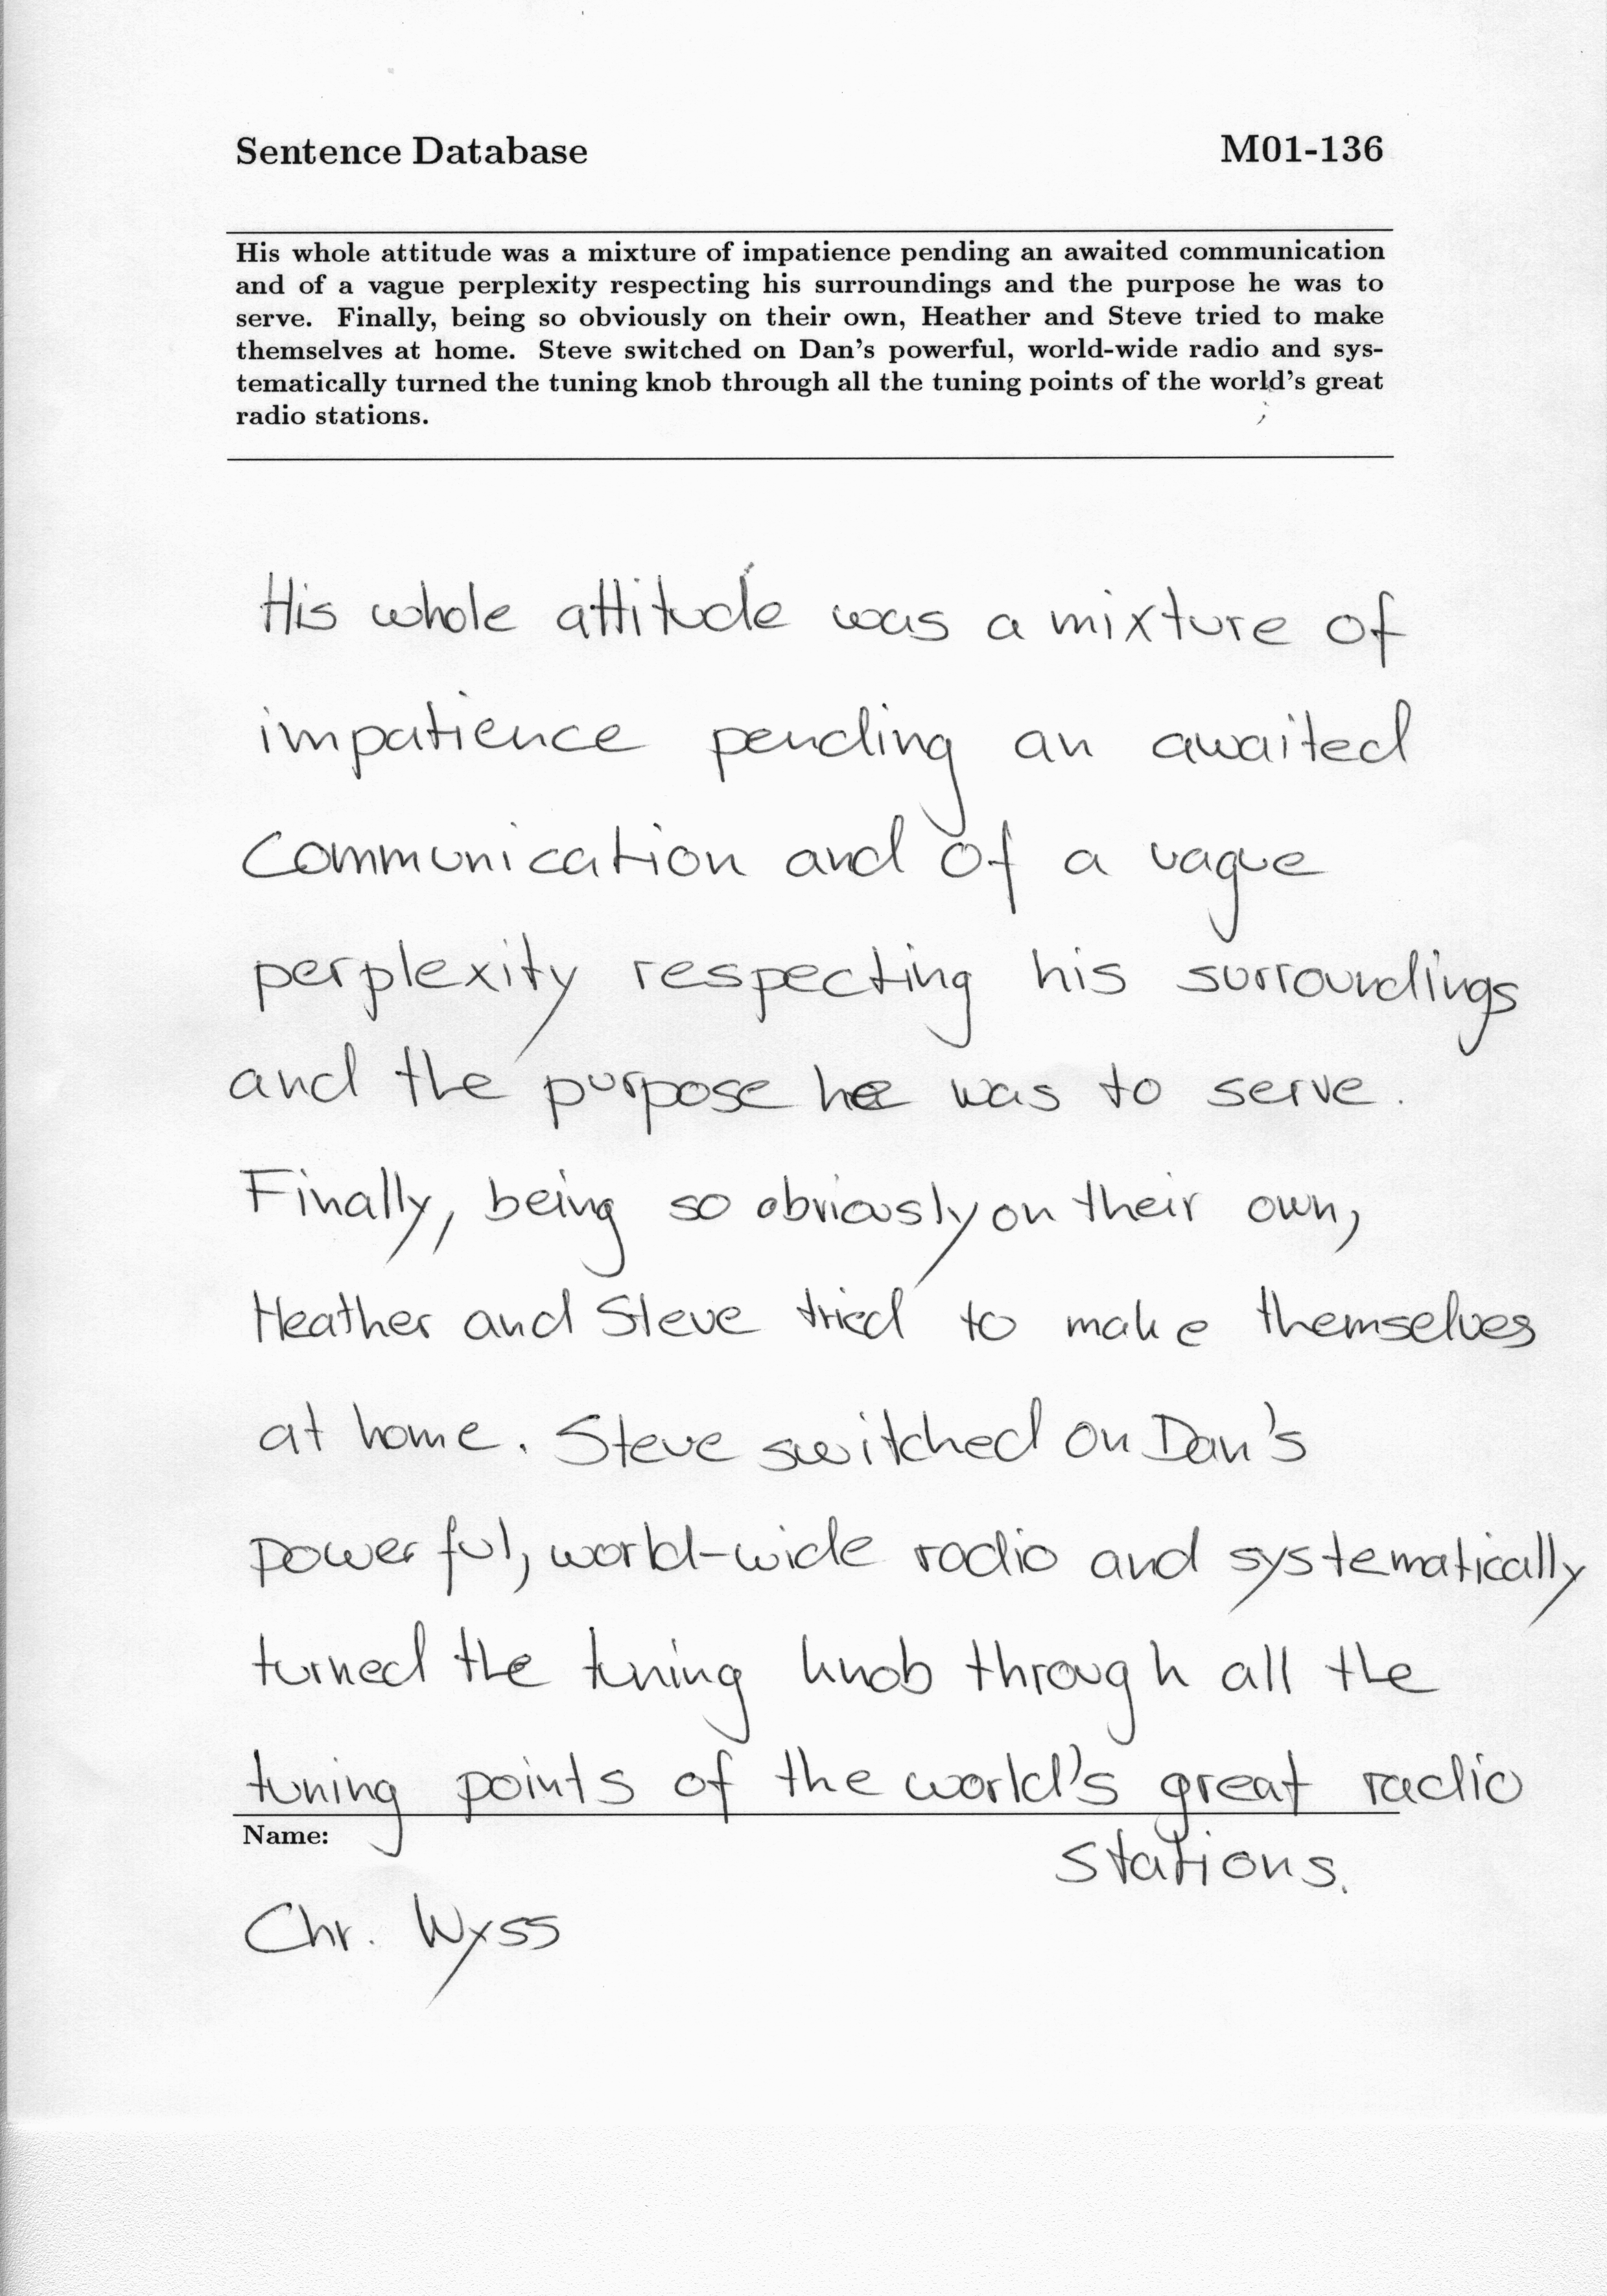 Sentence Database M01-136
His whole attitude was a mixture of impatience pending an awaited communication
and of a vague perplexity respecting his surroundings and the purpose he was to
serve. Finally, being so obviously on their own, Heather and Steve tried to make
themselves at home. Steve switched on Dan's powerful, world-wide radio and sys-
tematically turned the tuning knob through all the tuning points of the world's great
radio stations.
His whole attitude was a mixture of
impatience pending an awaited
Communication and of a vague
perplexity respecting his surroundings
and the purpose he was to serve.
Finally, being so obviously on their own,
Heather and Steve tried to make themselves
at home. Steve switched on Dan's
powerful, world-wide radio and systematically
turned the tuning knob through all the
tuning points of the world's great radio
stations.
Name:
Chr. Wyss